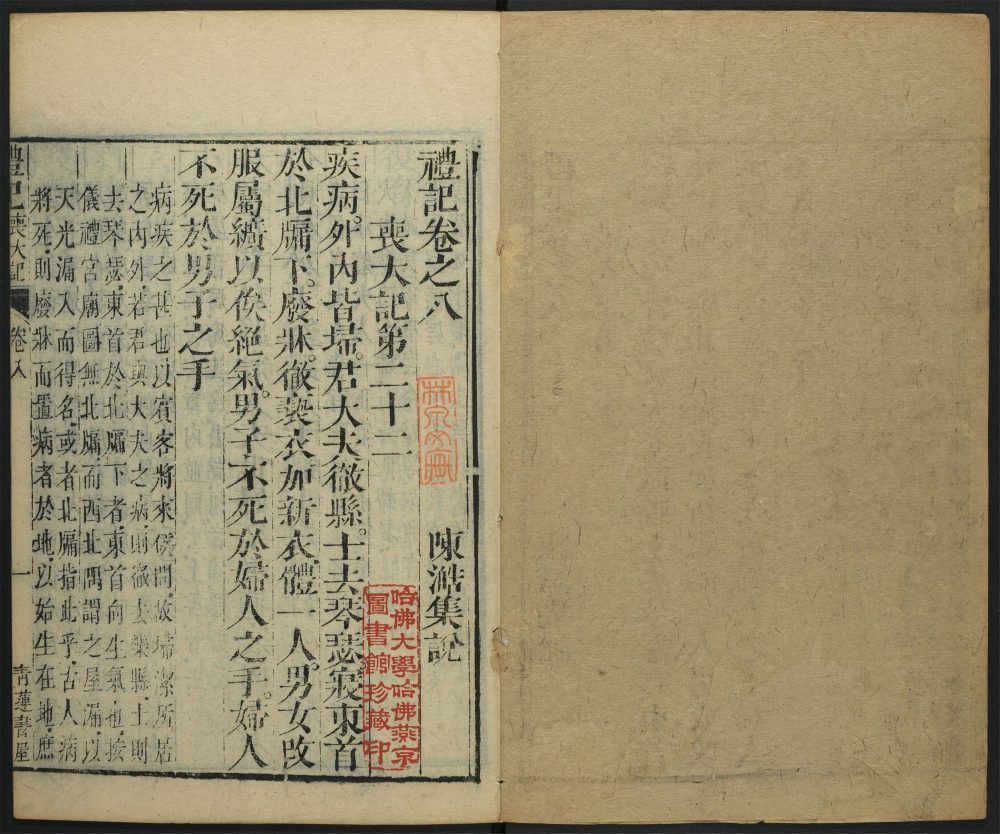 禮記卷之八
陳澔集說
喪大記第二十二
疾病外內皆埽君大夫徹縣士去琴瑟寢東首
於北牖下廢牀徹褻衣加新衣體一人男女改
服屬纊以俟絕氣男子不死於婦人之手婦人
不死於男子之手
病疾之甚也以賓客將來候問故埽潔所居
之內外若君與大夫之病則徹去樂縣士則
去琴瑟東首於北牖下者東首向生氣也按
儀禮宮廟圖無北牖而西北隅謂之屋漏以
天光漏入而得名或者北牖指此乎古人病
將死則廢牀而置病者於地以始生在地庶
禮記喪大記
卷八
一
青蓮書屋
哈佛大學哈佛燕京
圖書館珍藏印